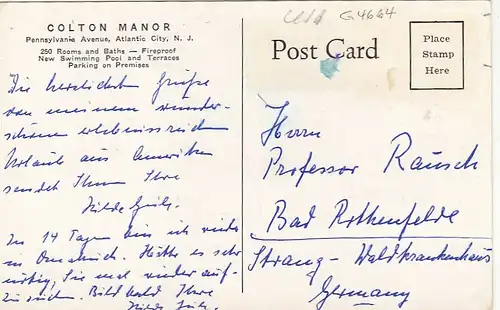 COLTON MANOR
Pennsylvania Avenue, Atlantic City, N. J.
250 Rooms and Baths — Fireproof
New Swimming Pool and Terraces
Parking on Premises
Die herzlichsten Grüße
von meinem wunder-
schönen erlebnisreichen
Urlaub aus Amerika
sendet Ihnen Ihre
Hilde
In 14 Tagen bin ich wieder
in Osnabrück. Hätte es sehr
nötig, Sie mal wieder auf-
zusuchen. Bis bald Ihre
Hilde
G4664
Post Card
Place
Stamp
Here
Herrn
Professor Rausch
Bad Rothenfelde
Strang - Waldkrankenhaus
Germany